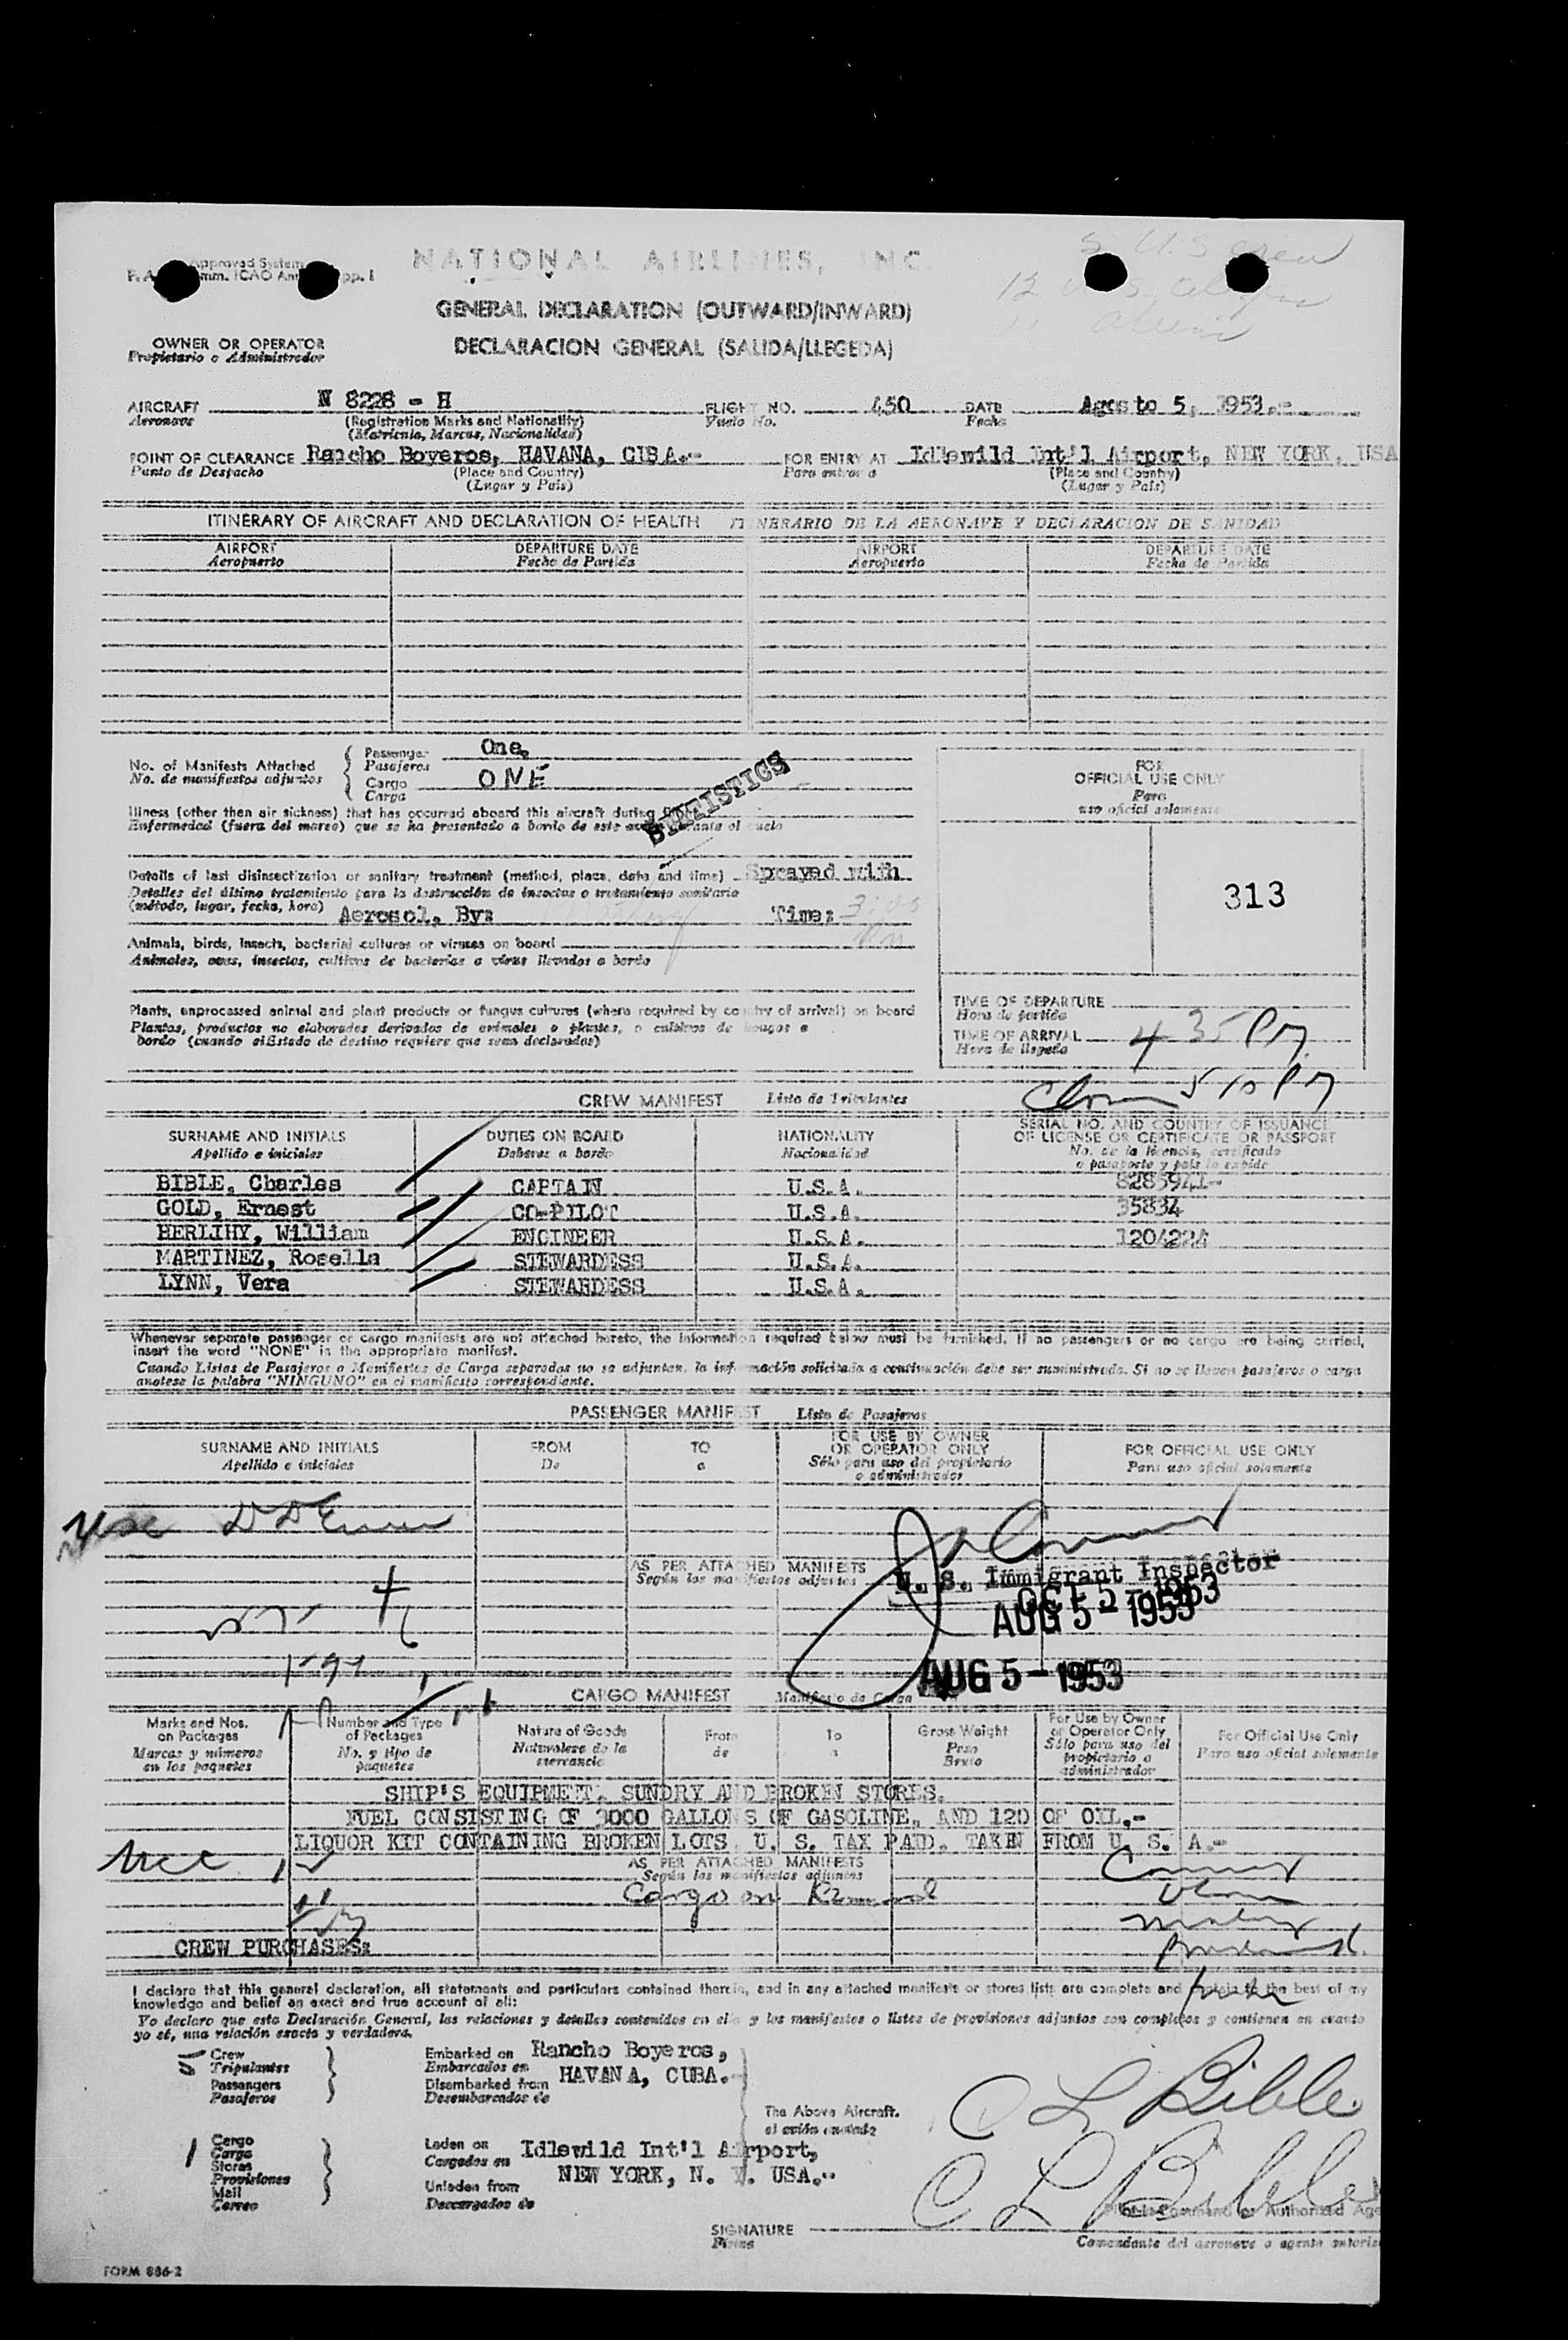 NATIONAL AIRLINES, INC
Approved System
GENERAL DECLARATION (OUTWARD/INWARD)
OWNER OR OPERATOR
Propietario o Administrador
DECLARACION GENERAL (SALIDA/LLEGEDA)
AIRCRAFT N 8228 - H FLIGHT NO. 450 DATE Agosto 5, 1953.-
Aeronave (Registration Marks and Nationality) Vuelo No. Fecha
(Matricula, Marcas, Nacionalidad)
POINT OF CLEARANCE Rancho Boyeros, HAVANA, CUBA.- FOR ENTRY AT Idlewild Int'l Airport, NEW YORK, USA
Punto de Despacho (Place and Country) Para entrar a (Place and Country)
(Lugar y Pais) (Lugar y Pais)
ITINERARY OF AIRCRAFT AND DECLARATION OF HEALTH ITINERARIO DE LA AERONAVE Y DECLARACION DE SANIDAD
AIRPORT DEPARTURE DATE AIRPORT DEPARTURE DATE
Aeropuerto Fecha de Partida Aeropuerto Fecha de Partida
No. of Manifests Attached
No. de manifiestos adjuntos
Passenger One.
Pasajeros
Cargo ONE
Carga
STATISTICS
FOR
OFFICIAL USE ONLY
Para
uso oficial solamente
Illness (other than air sickness) that has occurred aboard this aircraft during
Enfermedad (fuera del mareo) que se ha presentado a bordo de este durante el vuelo
Details of last disinsectization or sanitary treatment (method, place, date and time) Sprayed with
Detalles del último tratamiento para la destrucción de insectos o tratamiento sanitario
(método, lugar, fecha, hora) Aerosol. By: Time:
313
Animals, birds, insects, bacterial cultures or viruses on board
Animales, aves, insectos, cultivos de bacterias o virus llevados a bordo
Plants, unprocessed animal and plant products or fungus cultures (where required by country of arrival) on board
Plantas, productos no elaborados derivados de animales o plantas, o cultivos de hongos a
bordo (cuando el Estado de destino requiere que sean declarados)
TIME OF DEPARTURE
Hora de partida
TIME OF ARRIVAL 4 35 PM
Hora de llegada
5 10 PM
CREW MANIFEST Lista de Tripulantes
SURNAME AND INITIALS DUTIES ON BOARD NATIONALITY SERIAL NO. AND COUNTRY OF ISSUANCE
OF LICENSE OR CERTIFICATE OR PASSPORT
Apellido e iniciales Deberes a bordo Nacionalidad No. de la licencia, certificado
o pasaporte y pais lo expide
BIBLE, Charles CAPTAIN U.S.A. 8285941-
GOLD, Ernest CO-PILOT U.S.A. 35834
HERLIHY, William ENGINEER U.S.A. 1204224
MARTINEZ, Rosella STEWARDESS U.S.A.
LYNN, Vera STEWARDESS U.S.A.
Whenever separate passenger or cargo manifests are not attached hereto, the information required below must be furnished. If no passengers or no cargo are being carried,
insert the word "NONE" in the appropriate manifest.
Cuando Listas de Pasajeros o Manifiestos de Carga separados no se adjuntan, la información solicitada a continuación debe ser suministrada. Si no se llevan pasajeros o carga
anotese la palabra "NINGUNO" en el manifiesto correspondiente.
PASSENGER MANIFEST Lista de Pasajeros
SURNAME AND INITIALS FROM TO FOR USE BY OWNER
OR OPERATOR ONLY FOR OFFICIAL USE ONLY
Apellido e iniciales De a Sólo para uso del propietario
o administrador Para uso oficial solamente
AS PER ATTACHED MANIFESTS
Según los manifiestos adjuntos
U. S. Immigrant Inspector
AUG 5 - 1953
AUG 5 - 1953
CARGO MANIFEST Manifiesto de Carga
Marks and Nos.
on Packages
Marcas y números
en los paquetes
Number and Type
of Packages
No. y tipo de
paquetes
Nature of Goods
Naturaleza de la
mercancia
From
de
To
a
Gross Weight
Peso
Bruto
For Use by Owner
or Operator Only
Sólo para uso del
propietario o
administrador
For Official Use Only
Para uso oficial solamente
SHIP'S EQUIPMENT, SUNDRY AND BROKEN STORES.
FUEL CONSISTING OF 3000 GALLONS OF GASOLINE, AND 120 OF OIL.-
LIQUOR KIT CONTAINING BROKEN LOTS U. S. TAX PAID. TAKEN FROM U. S. A.-
AS PER ATTACHED MANIFESTS
Según los manifiestos adjuntos
Cargo on
CREW PURCHASES:
I declare that this general declaration, all statements and particulars contained therein, and in any attached manifests or stores lists are complete and contain to the best of my
knowledge and belief an exact and true account of all:
Yo declaro que esta Declaración General, las relaciones y detalles contenidos en ella y los manifiestos o listas de provisiones adjuntos son completos y contienen en cuanto
yo sé, una relación exacta y verdadera.
5 Crew
Tripulantes
Passengers
Pasajeros
Embarked on Rancho Boyeros,
Embarcados en HAVANA, CUBA.-
Disembarked from
Desembarcados de
The Above Aircraft.
el avión anotado
C L Bible
1 Cargo
Carga
Stores
Provisiones
Mail
Correo
Laden on Idlewild Int'l Airport,
Cargados en NEW YORK, N. Y. USA.-
Unladen from
Descargados de
C L Bible
SIGNATURE
Firma
Pilot in Command or Authorized Age
Comandante del aeronave o agente autoriz
FORM 886-2